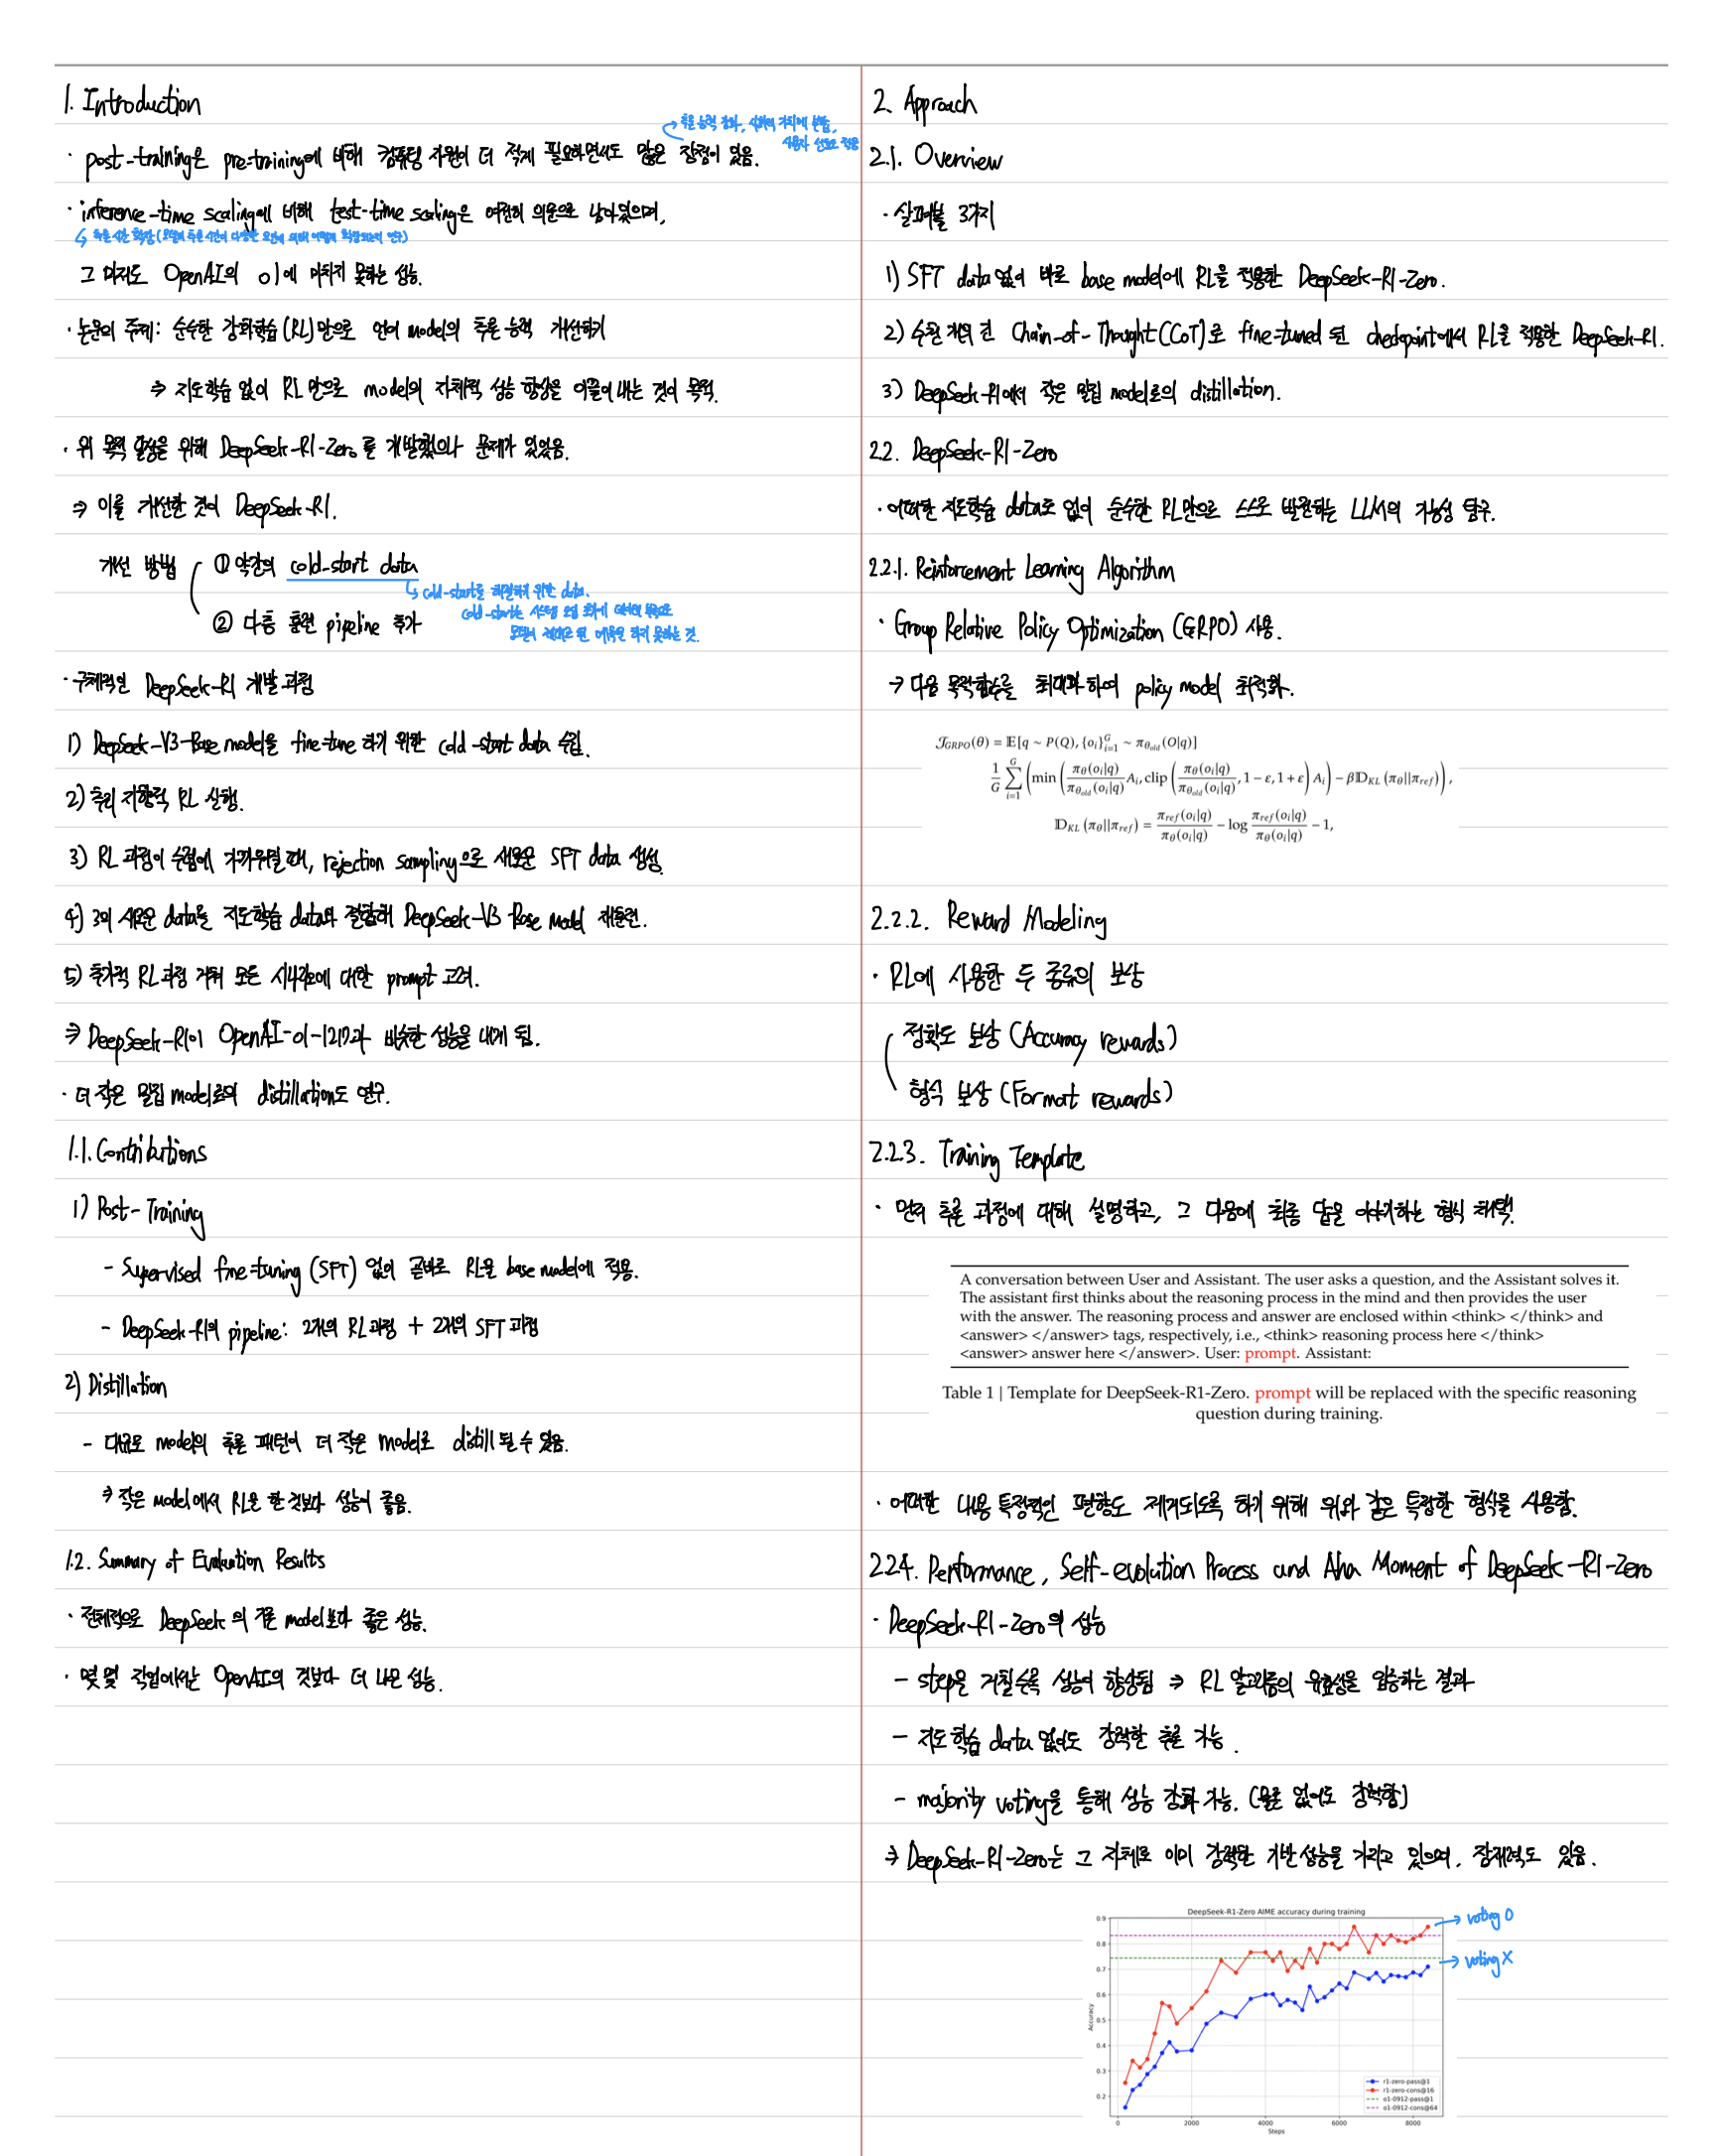 1. Introduction
· post-training은 pre-training에 비해 컴퓨팅 자원이 더 적게 필요하면서도 많은 장점이 있음.
추론 능력 강화, 사회적 가치에 부합,
사용자 선호도 적응
· inference-time scaling에 비해 test-time scaling은 여전히 의문으로 남아있으며,
추론 시간 확장 (모델의 추론 시간이 다양한 요인에 의해 어떻게 확장되는지 연구)
그 마저도 OpenAI의 o1에 미치지 못하는 성능.
· 논문의 주제: 순수한 강화학습(RL)만으로 언어 model의 추론 능력 개선하기
⇒ 지도학습 없이 RL만으로 model의 자체적 성능 향상을 이끌어내는 것이 목적.
· 위 목적 달성을 위해 DeepSeek-R1-Zero를 개발했으나 문제가 있었음.
⇒ 이를 개선한 것이 DeepSeek-R1.
개선 방법 ① 약간의 cold-start data
cold-start를 해결하기 위한 data.
cold-start는 시스템 도입 초기에 데이터 부족으로
모델이 제대로 된 예측을 하지 못하는 것.
② 다층 훈련 pipeline 추가
· 구체적인 DeepSeek-R1 개발 과정
1) DeepSeek-V3-Base model을 fine-tune 하기 위한 cold-start data 수집.
2) 추리 지향적 RL 실행.
3) RL 과정이 수렴에 가까워질 때, rejection sampling으로 새로운 SFT data 생성.
4) 3의 새로운 data를 지도학습 data와 결합해 DeepSeek-V3-Base model 재훈련.
5) 추가적 RL 과정 거쳐 모든 시나리오에 대한 prompt 고려.
⇒ DeepSeek-R1이 OpenAI-o1-1217과 비슷한 성능을 내게 됨.
· 더 작은 밀집 model로의 distillation도 연구.
1.1. Contributions
1) Post-Training
- Supervised fine-tuning (SFT) 없이 곧바로 RL을 base model에 적용.
- DeepSeek-R1의 pipeline: 2개의 RL과정 + 2개의 SFT 과정
2) Distillation
- 대규모 model의 추론 패턴이 더 작은 model로 distill 될 수 있음.
⇒ 작은 model에서 RL을 한 것보다 성능이 좋음.
1.2. Summary of Evaluation Results
· 전체적으로 DeepSeek의 기존 model보다 좋은 성능.
· 몇 몇 작업에서는 OpenAI의 것보다 더 나은 성능.
2. Approach
2.1. Overview
· 살펴볼 3가지
1) SFT data 없이 바로 base model에 RL을 적용한 DeepSeek-R1-Zero.
2) 수천 개의 긴 Chain-of-Thought(CoT)로 fine-tuned 된 checkpoint에서 RL을 적용한 DeepSeek-R1.
3) DeepSeek-R1에서 작은 밀집 model로의 distillation.
2.2. DeepSeek-R1-Zero
· 어떠한 지도학습 data도 없이 순수한 RL만으로 스스로 발전하는 LLM의 가능성 탐구.
2.2.1. Reinforcement Learning Algorithm
· Group Relative Policy Optimization (GRPO) 사용.
→ 다음 목적함수를 최대화 하여 policy model 최적화.
𝒥_{GRPO}(θ) = 𝔼[q ∼ P(Q), {o_i}_{i=1}^G ∼ π_{θ_{old}}(O|q)]
1/G ∑_{i=1}^G (min(π_θ(o_i|q)/π_{θ_{old}}(o_i|q) A_i, clip(π_θ(o_i|q)/π_{θ_{old}}(o_i|q), 1 − ε, 1 + ε) A_i) − β𝔻_{KL}(π_θ||π_{ref})),
𝔻_{KL}(π_θ||π_{ref}) = π_{ref}(o_i|q)/π_θ(o_i|q) − log π_{ref}(o_i|q)/π_θ(o_i|q) − 1,
2.2.2. Reward Modeling
· RL에 사용한 두 종류의 보상
정확도 보상 (Accuracy rewards)
형식 보상 (Format rewards)
2.2.3. Training Template
· 먼저 추론 과정에 대해 설명하고, 그 다음에 최종 답을 이야기하는 형식 채택.
A conversation between User and Assistant. The user asks a question, and the Assistant solves it.
The assistant first thinks about the reasoning process in the mind and then provides the user
with the answer. The reasoning process and answer are enclosed within <think> </think> and
<answer> </answer> tags, respectively, i.e., <think> reasoning process here </think>
<answer> answer here </answer>. User: prompt. Assistant:
Table 1 | Template for DeepSeek-R1-Zero. prompt will be replaced with the specific reasoning
question during training.
· 어떠한 내용 특정적인 편향도 제거되도록 하기 위해 위와 같은 특정한 형식을 사용함.
2.2.4. Performance, Self-evolution Process and Aha Moment of DeepSeek-R1-Zero
· DeepSeek-R1-Zero의 성능
- step을 거칠수록 성능이 향상됨 ⇒ RL 알고리즘의 유효성을 입증하는 결과
- 지도 학습 data 없이도 강력한 추론 가능.
- majority voting을 통해 성능 강화 가능. (물론 없어도 강력함)
⇒ DeepSeek-R1-Zero는 그 자체로 이미 강력한 기반 성능을 가지고 있으며, 잠재력도 있음.
DeepSeek-R1-Zero AIME accuracy during training
voting O
voting X
0.9
0.8
0.7
0.6
0.5
0.4
0.3
0.2
Accuracy
r1-zero-pass@1
r1-zero-cons@16
o1-0912-pass@1
o1-0912-cons@64
0 2000 4000 6000 8000
Steps